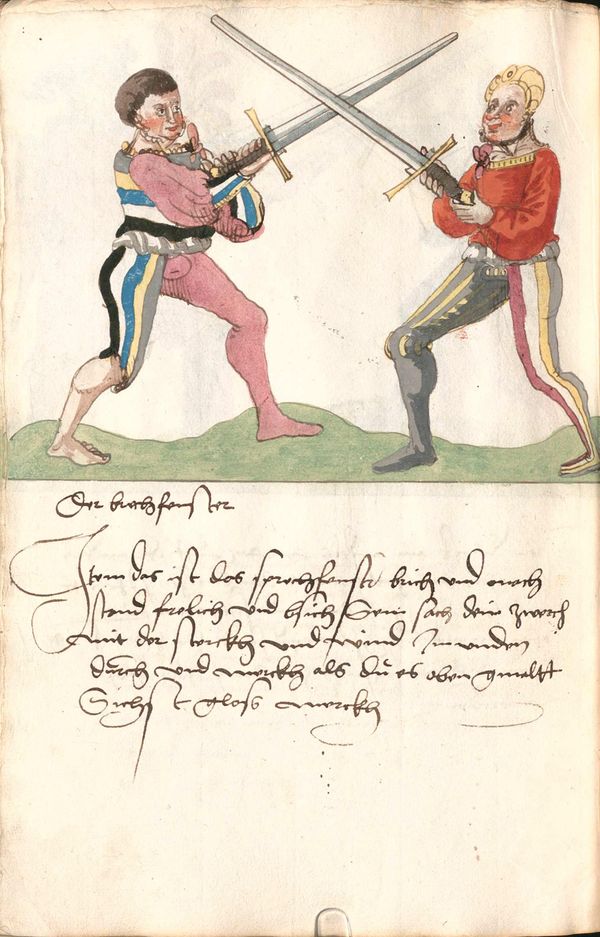 Der brechfenster
Item das ist das sprechfenster brich und mach
stand frolich und bsich sein sach dein zwerch
mit der sterckh und wind Im unden
durch und merckh als du es oben gmalt
Sichst glos merckh